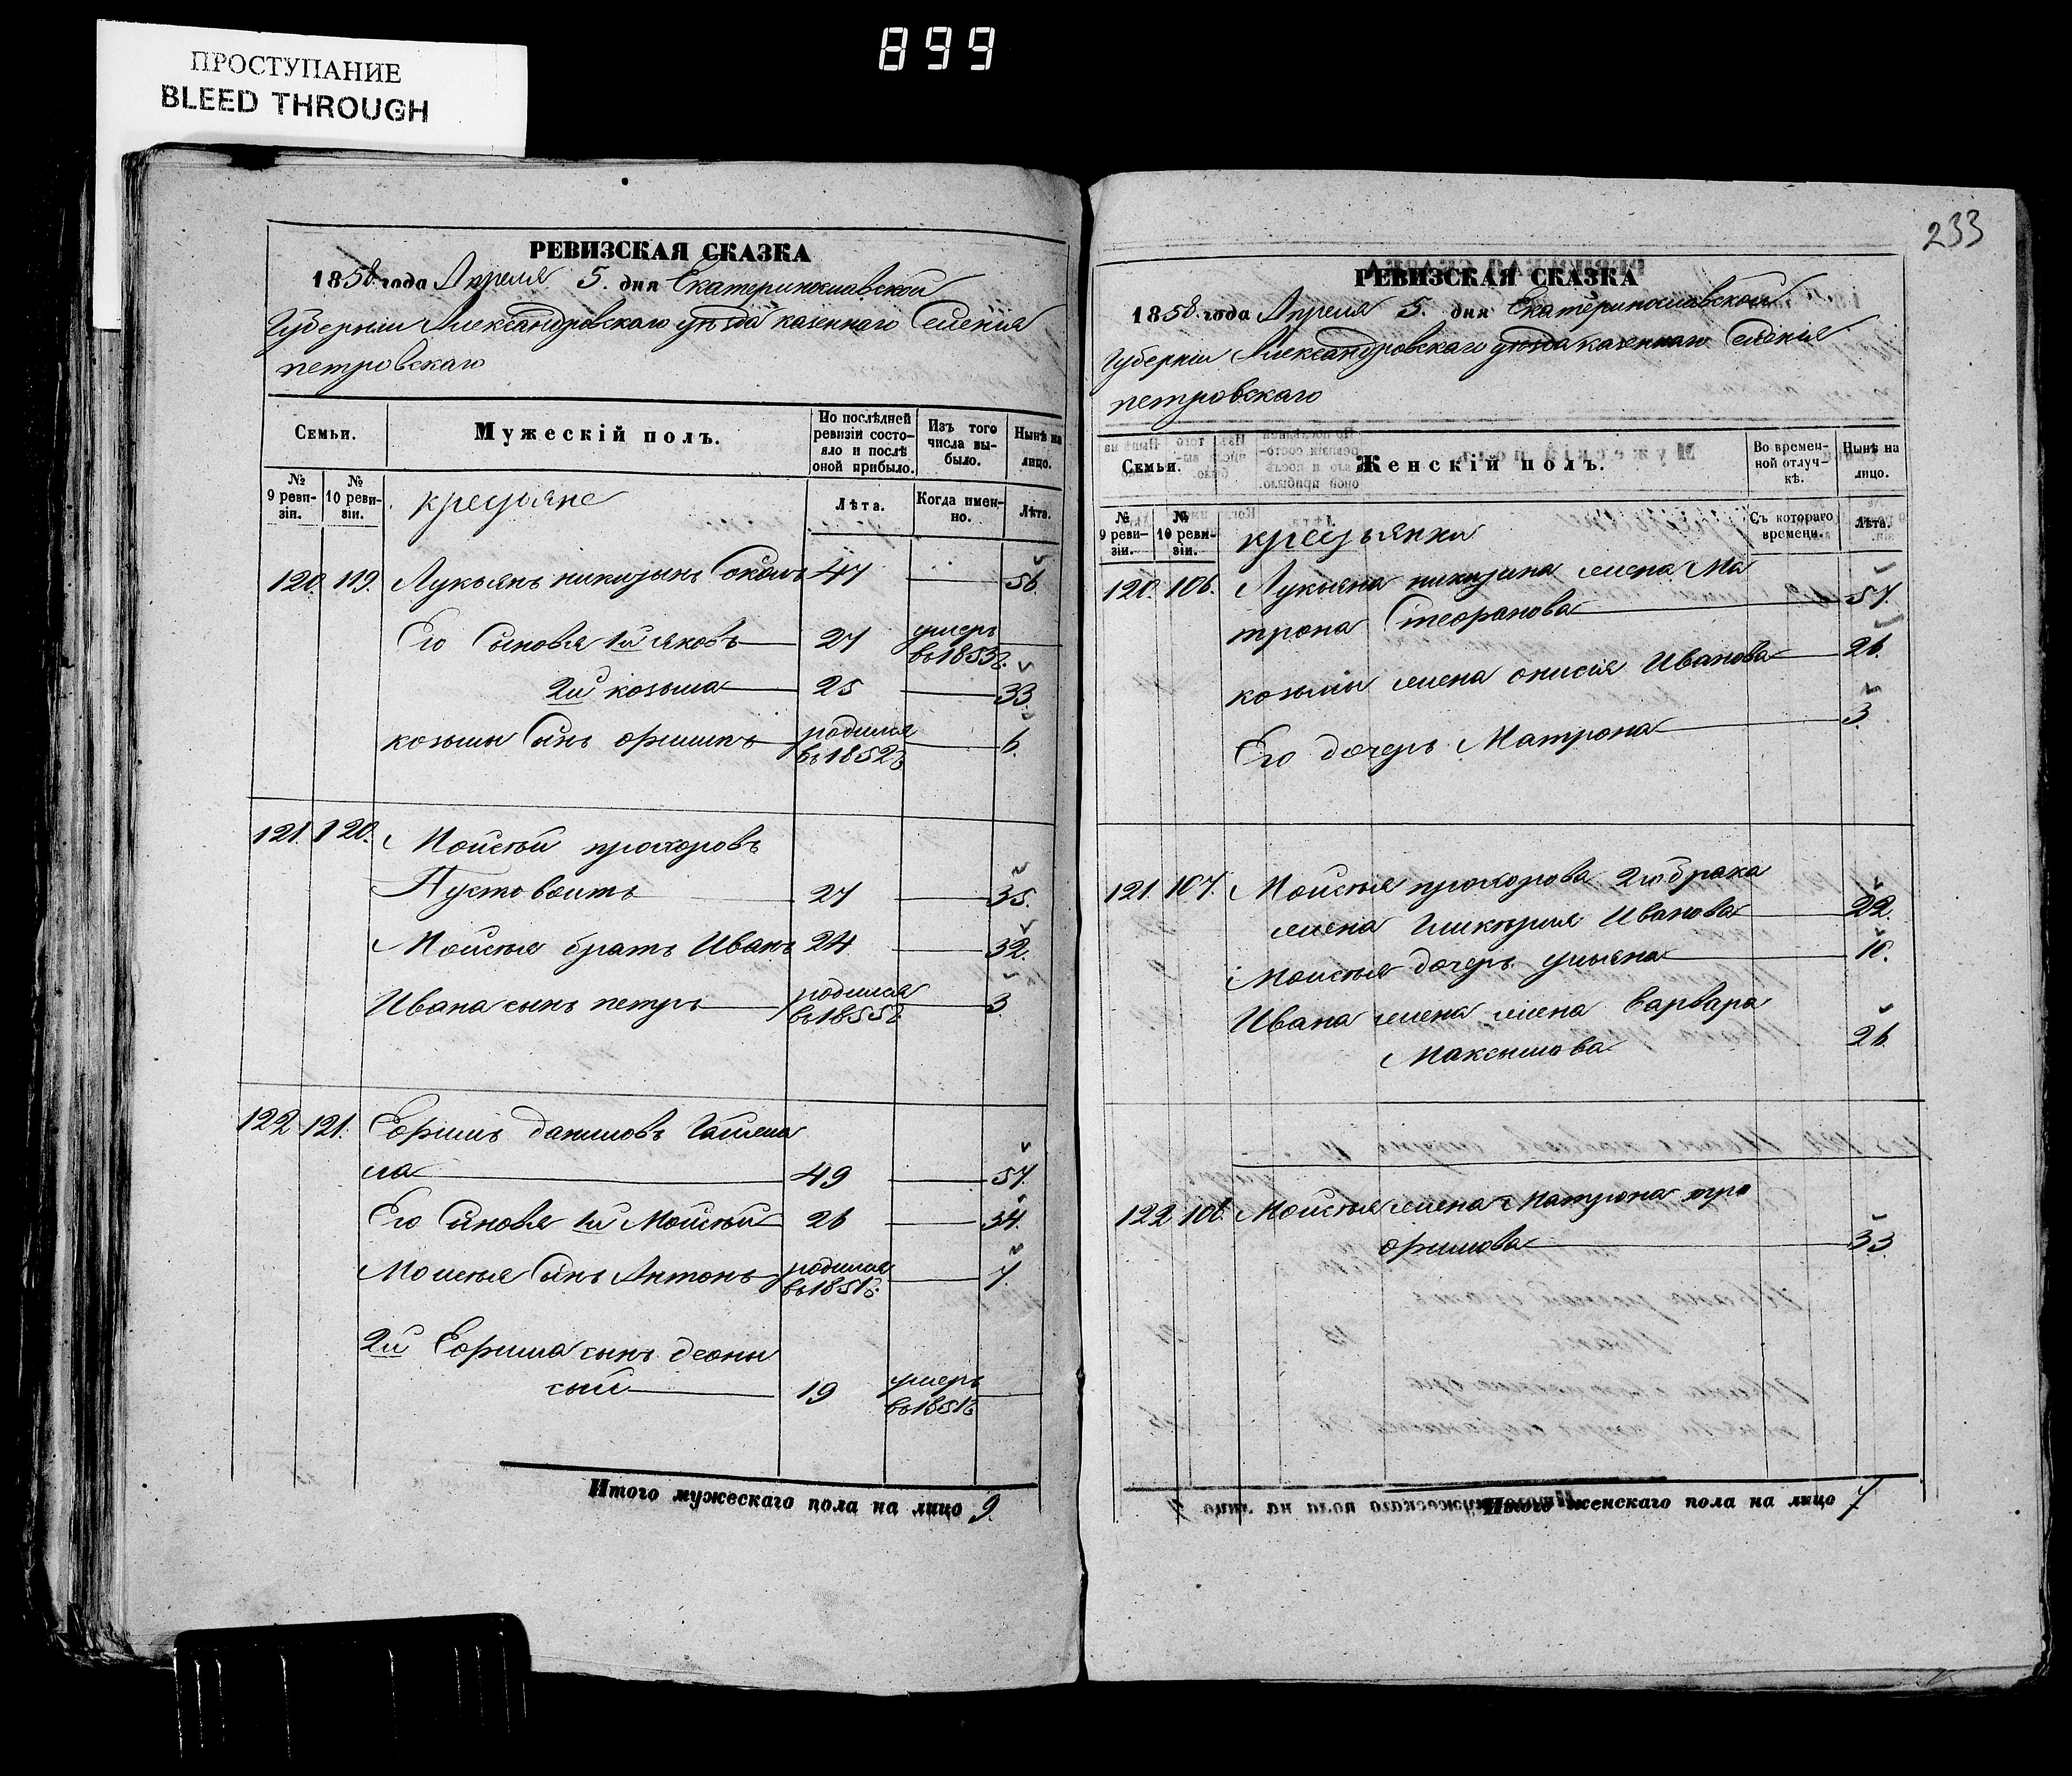 899
ПРОСТУПАНИЕ
BLEED THROUGH
РЕВИЗСКАЯ СКАЗКА
1858 года Апреля 5. дня Екатеринославской
Губерніи Александровскаго уѣзда казеннаго Селенія
петровскаго
Семьи.
Мужескій полъ.
По послѣдней ревизіи состояло и послѣ оной прибыло.
Изъ того числа выбыло.
Нынѣ на лицо.
№ 9 ревизіи.
№ 10 ревизіи.
крестьяне
Лѣта.
Когда именно.
Лѣта.
120. 119. Лукьянъ никитинъ 47 56.
Его Сыновья 1й яковъ 27 умеръ въ 1853г.
2й козьма 25 33.
козьмы Сынъ ефимъ родился въ 1852г 6.
121. 120. Мойсѣй прохоровъ
Пустовоитъ 27 35.
Мойсѣя братъ Иванъ 24 32.
Ивана сынъ петръ родился въ 1855г. 3
122 121. Ефимъ даниловъ
ла 49 57.
Его Сыновья 1й Мойсѣй 26 34.
Мойсѣя Сынъ Антонъ родился въ 1851г. 7.
2й Ефима сынъ деоны
сый 19 умеръ въ 1851г
Итого мужескаго пола на лицо 9.
233
РЕВИЗСКАЯ СКАЗКА
1858. года Апреля 5. дня Екатеринославской
Губерніи Александровскаго уѣзда казеннаго Селенія
петровскаго
Семьи.
Женскій полъ.
Во временной отлучкѣ.
Нынѣ на лицо.
№ 9 ревизіи.
№ 10 ревизіи.
крестьянки
Съ котораго времени.
Лѣта.
120. 106. Лукьяна никитина жена Ма
трона Стефанова 57.
козьмы жена онисія Иванова 26.
Его дочерь Матрона 3.
121. 107. Мойсѣя прохорова 2го брака
жена Гликерия Иванова 22.
Мойсѣя дочерь ульяна 10.
Ивана жена жена варвара
Максымова 26.
122 108. Мойсѣя жена Матрона тро
фимова 33
Итого женскаго пола на лицо 7